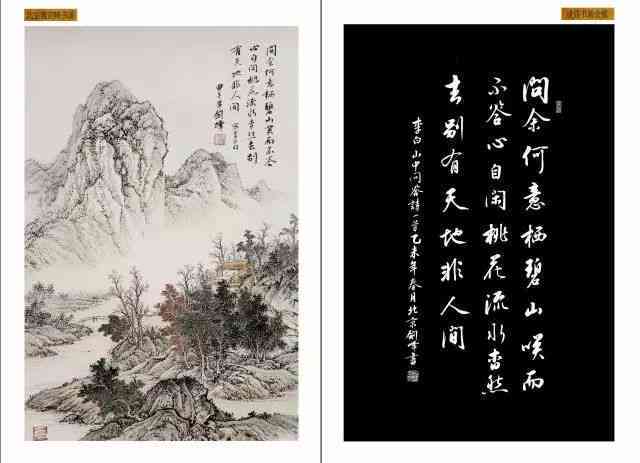 問余何意栖碧山笑而不答
心自閑桃花流水杳然去别
有天地非人間
劍峰
問余何意栖碧山咲而
不答心自閑桃花流水杳然
去别有天地非人間
李白山中問答詩一首乙未年春月北京劍峰書